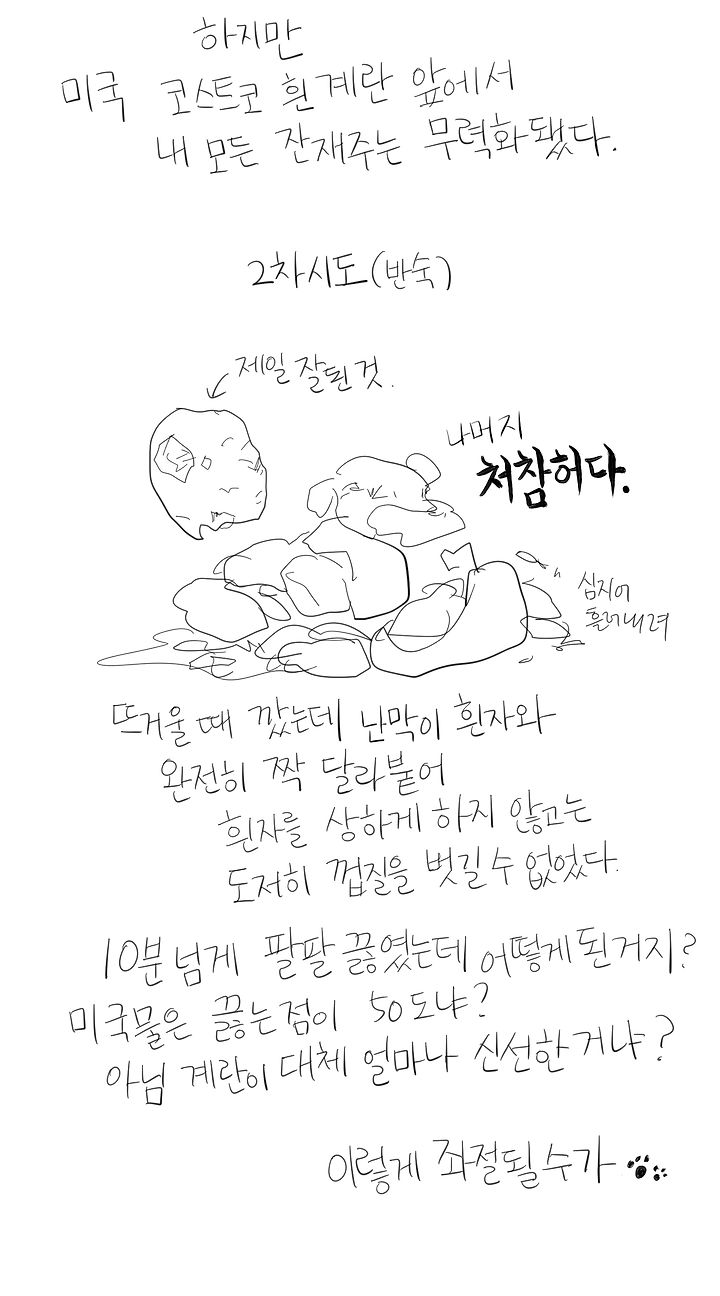 하지만
미국 코스트코 흰 계란 앞에서
내 모든 잔재주는 무력화됐다.
2차시도(반숙)
제일 잘된 것.
나머지
처참허다.
심지어
흘러내려
뜨거울 때 깠는데 난막이 흰자와
완전히 짝 달라붙어
흰자를 상하게 하지 않고는
도저히 껍질을 벗길 수 없었다.
10분 넘게 팔팔 끓였는데 어떻게 된거지?
미국물은 끓는점이 50도냐?
아님 계란이 대체 얼마나 신선한거냐?
이렇게 좌절될 수가